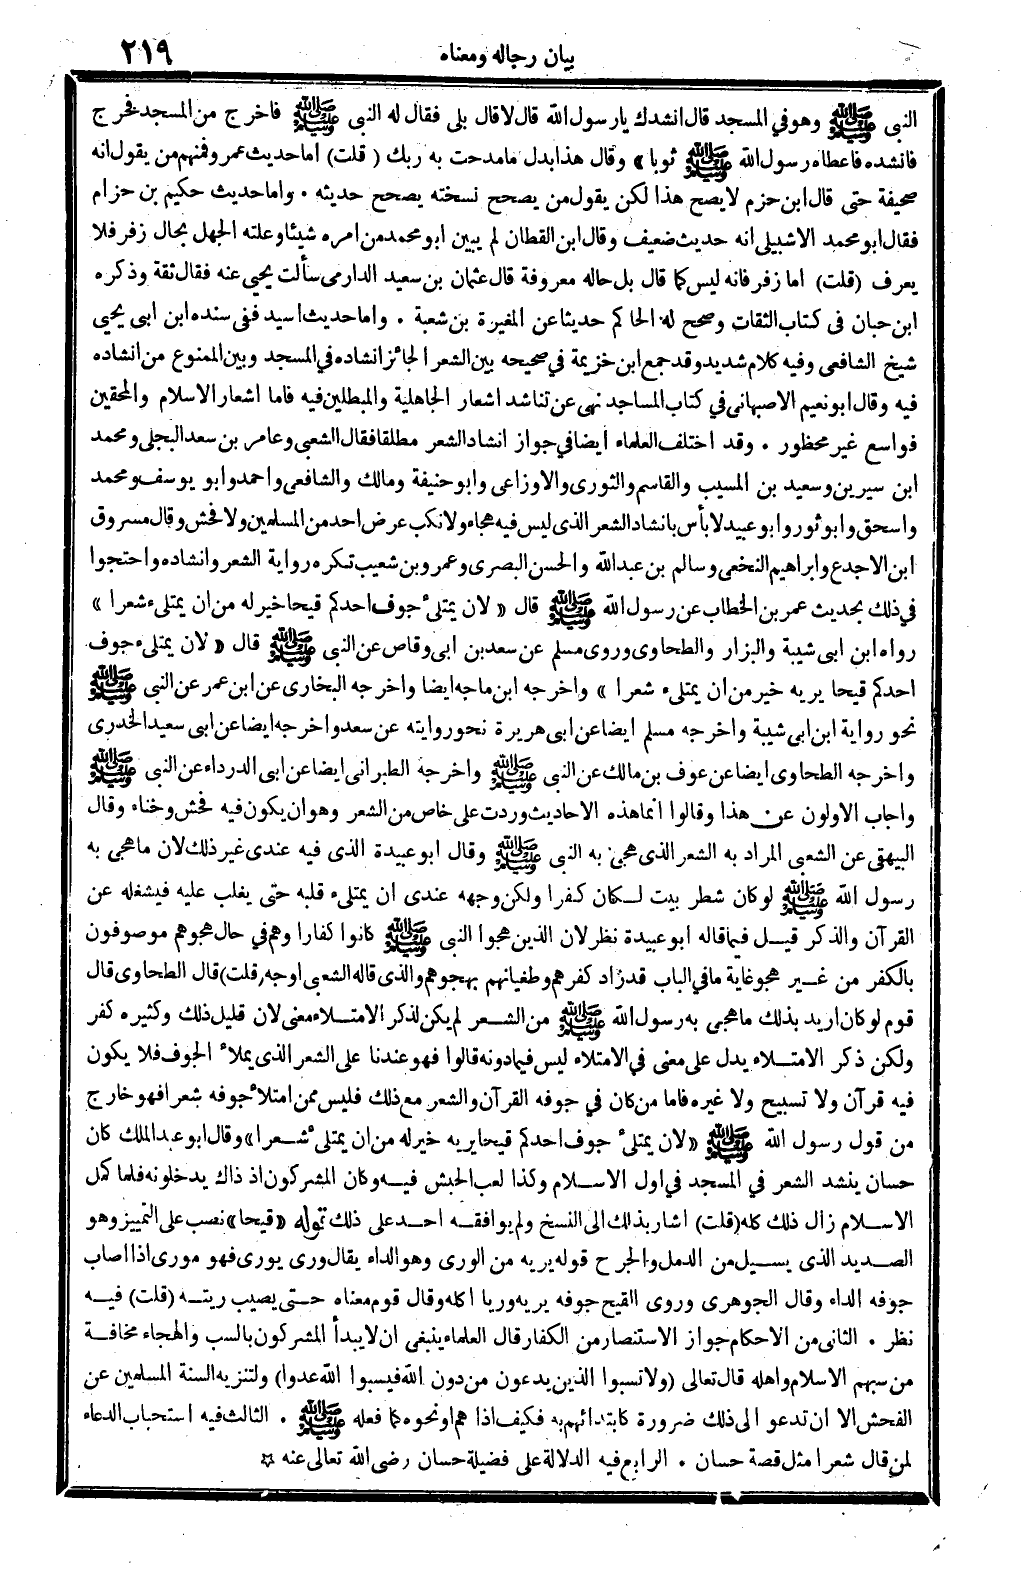 بيان رجاله ومعناه ٢١٩
النبي ﷺ وهو في المسجد قال انشدك يا رسول الله قال لا قال بلى فقال له النبي ﷺ فاخرج من المسجد فخرج
فانشده فاعطاه رسول الله ﷺ ثوبا» وقال هذا بدل ما مدحت به ربك (قلت) اما حديث عمرو فمنهم من يقول انه
صحيفة حتى قال ابن حزم لا يصح هذا لكن يقول من يصحح نسخته يصحح حديثه . واما حديث حكيم بن حزام
فقال ابو محمد الاشبيلى انه حديث ضعيف وقال ابن القطان لم يبين ابو محمد من امره شيئا وعلته الجهل بحال زفر فلا
يعرف (قلت) اما زفر فانه ليس كما قال بل حاله معروفة قال عثمان بن سعيد الدارمى سألت يحيى عنه فقال ثقة وذكره
ابن حبان فى كتاب الثقات وصحح له الحاكم حديثا عن المغيرة بن شعبة . واما حديث اسيد ففى سنده ابن ابى يحيى
شيخ الشافعى وفيه كلام شديد وقد جمع ابن خزيمة في صحيحه بين الشعر الجائز انشاده في المسجد وبين الممنوع من انشاده
فيه وقال ابو نعيم الاصبهانى في كتاب المساجد نهى عن تناشد اشعار الجاهلية والمبطلين فيه فاما اشعار الاسلام والمحقين
فواسع غير محظور . وقد اختلف العلماء ايضا في جواز انشاد الشعر مطلقا فقال الشعبى وعامر بن سعد البجلى ومحمد
ابن سيرين وسعيد بن المسيب والقاسم والثورى والاوزاعى وابو حنيفة ومالك والشافعى واحمد وابو يوسف ومحمد
واسحق وابو ثور وابو عبيد لا بأس بانشاد الشعر الذى ليس فيه هجاء ولا نكب عرض احد من المسلمين ولا فحش وقال مسروق
ابن الاجدع وابراهيم النخعى وسالم بن عبدالله والحسن البصرى وعمرو بن شعيب تكره رواية الشعر وانشاده واحتجوا
في ذلك بحديث عمر بن الخطاب عن رسول الله ﷺ قال «لان يمتلىء جوف احدكم قيحا خير له من ان يمتلىء شعرا»
رواه ابن ابى شيبة والبزار والطحاوى وروى مسلم عن سعد بن ابى وقاص عن النبى ﷺ قال «لان يمتلىء جوف
احدكم قيحا يريه خير من ان يمتلىء شعرا» واخرجه ابن ماجه ايضا واخرجه البخارى عن ابن عمر عن النبى ﷺ
نحو رواية ابن ابى شيبة واخرجه مسلم ايضا عن ابى هريرة نحو روايته عن سعد واخرجه ايضا عن ابى سعيد الخدرى
واخرجه الطحاوى ايضا عن عوف بن مالك عن النبى ﷺ واخرجه الطبرانى ايضا عن ابى الدرداء عن النبى ﷺ
واجاب الاولون عن هذا وقالوا انما هذه الاحاديث وردت على خاص من الشعر وهو ان يكون فيه فحش وخناء وقال
البيهقى عن الشعبى المراد به الشعر الذى هجى به النبى ﷺ وقال ابو عبيدة الذى فيه عندى غير ذلك لان ما هجى به
رسول الله ﷺ لو كان شطر بيت لكان كفرا ولكن وجهه عندى ان يمتلىء قلبه حتى يغلب عليه فيشغله عن
القرآن والذكر قيل فيما قاله ابو عبيدة نظر لان الذين هجوا النبى ﷺ كانوا كفارا وهم في حال هجوهم موصوفون
بالكفر من غير هجو غاية ما في الباب قد زاد كفرهم وطغيانهم بهجوهم والذى قاله الشعبى اوجه (قلت) قال الطحاوى قال
قوم لو كان اريد بذلك ما هجى به رسول الله ﷺ من الشعر لم يكن لذكر الامتلاء معنى لان قليل ذلك وكثيره كفر
ولكن ذكر الامتلاء يدل على معنى في الامتلاء ليس فيما دونه قالوا فهو عندنا على الشعر الذى يملأ الجوف فلا يكون
فيه قرآن ولا تسبيح ولا غيره فاما من كان في جوفه القرآن والشعر مع ذلك فليس ممن امتلأ جوفه شعرا فهو خارج
من قول رسول الله ﷺ «لان يمتلىء جوف احدكم قيحا يريه خير له من ان يمتلىء شعرا» وقال ابو عبد الملك كان
حسان ينشد الشعر في المسجد في اول الاسلام وكذا لعب الحبش فيه وكان المشركون اذ ذاك يدخلونه فلما كمل
الاسلام زال ذلك كله (قلت) اشار بذلك الى النسخ ولم يوافقه احد على ذلك قوله «قيحا» نصب على التمييز وهو
الصديد الذى يسيل من الدمل والجرح قوله يريه من الورى وهو الداء يقال ورى يورى فهو مورى اذا اصاب
جوفه الداء وقال الجوهرى وروى القيح جوفه يريه وريا اكله وقال قوم معناه حتى يصيب ريته (قلت) فيه
نظر . الثانى من الاحكام جواز الاستنصار من الكفار قال العلماء ينبغى ان لا يبدأ المشركون بالسب والهجاء مخافة
من سبهم الاسلام واهله قال تعالى (ولا تسبوا الذين يدعون من دون الله فيسبوا الله عدوا) ولتنزيه السنة المسلمين عن
الفحش الا ان تدعو الى ذلك ضرورة كابتدائهم به فكيف اذاهم او نحوه كما فعله ﷺ . الثالث فيه استحباب الدعاء
لمن قال شعرا مثل قصة حسان . الرابع فيه الدلالة على فضيلة حسان رضى الله تعالى عنه ☆